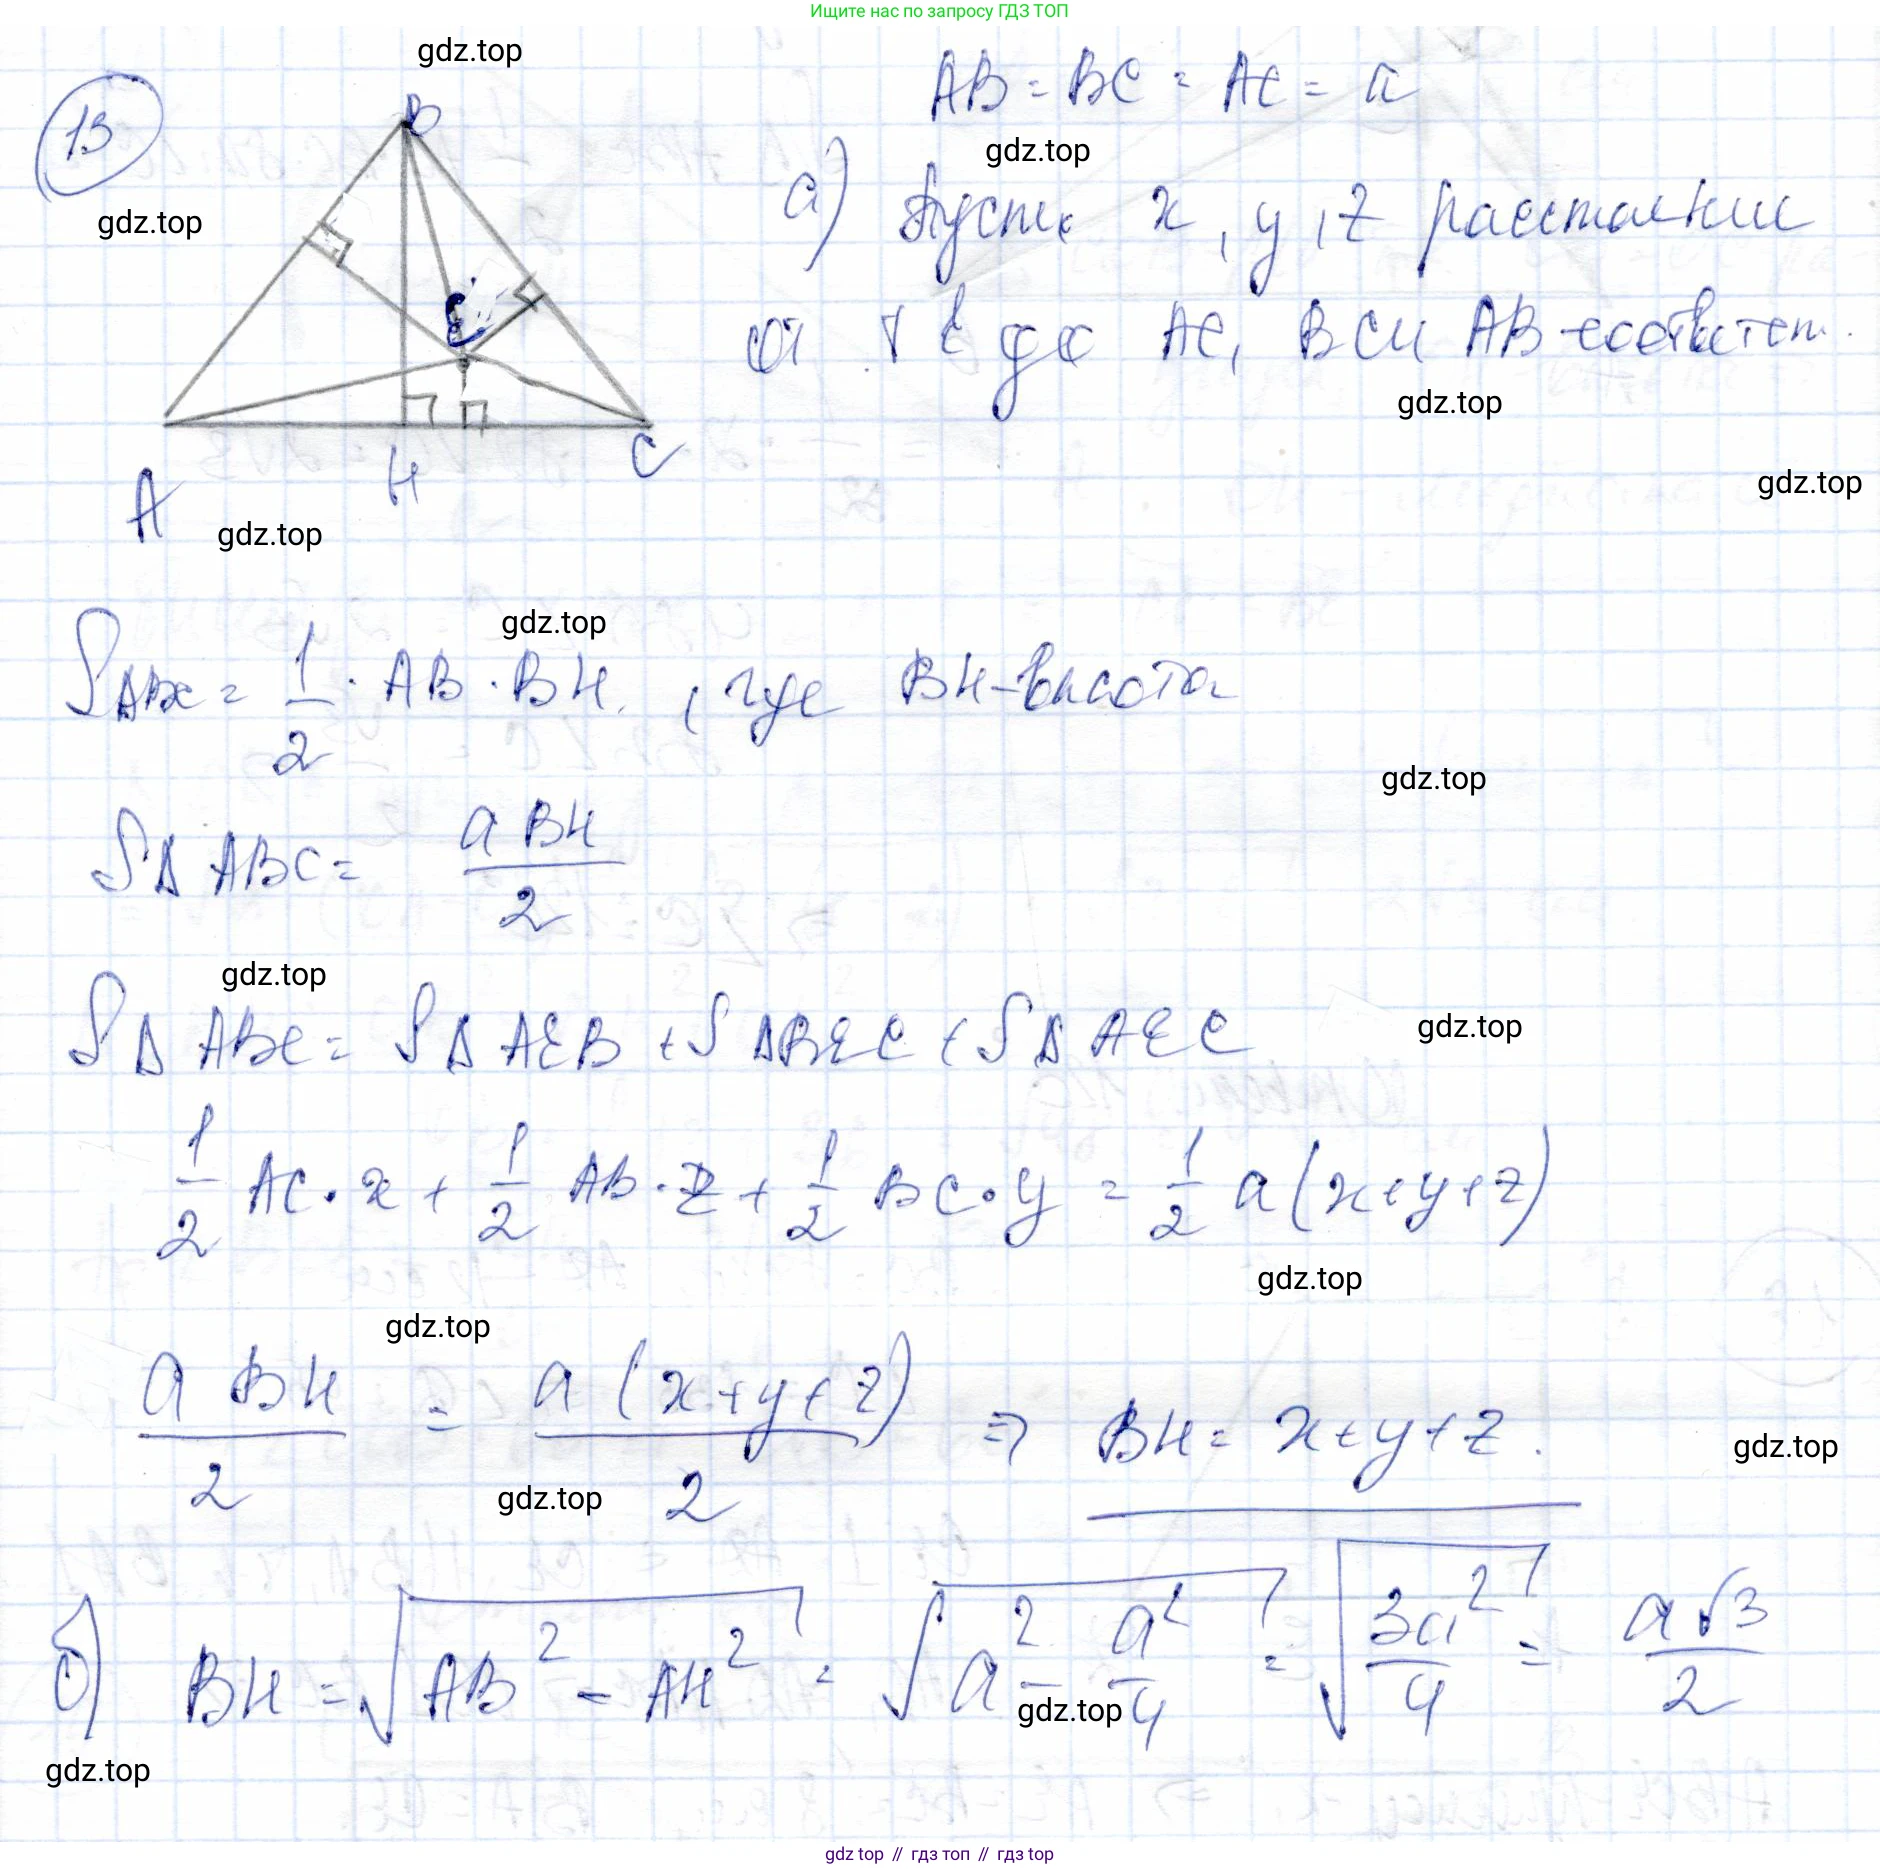 Ищите нас по запросу ГДЗ ТОП
gdz.top
13
B
AB = BC = AC = a
gdz.top
gdz.top
а) Пусть x, y, z расстояния
E
от т E до AC, BC и AB соответст.
gdz.top
A H C
gdz.top
gdz.top
gdz.top
S△ABC = 1/2 · AB · BH, где BH - высота
gdz.top
S△ABC = aBH/2
gdz.top
S△ABC = S△AEB + S△BEC + S△AEC
gdz.top
1/2 AC · x + 1/2 AB · z + 1/2 BC · y = 1/2 a (x+y+z)
gdz.top
gdz.top
a BH/2 = a (x+y+z)/2 ⇒ BH = x+y+z.
gdz.top
gdz.top
б) BH = √(AB² - AH²) = √(a² - a²/4) = √(3a²/4) = a√3/2
gdz.top
gdz.top
gdz top // гдз топ // гдз top